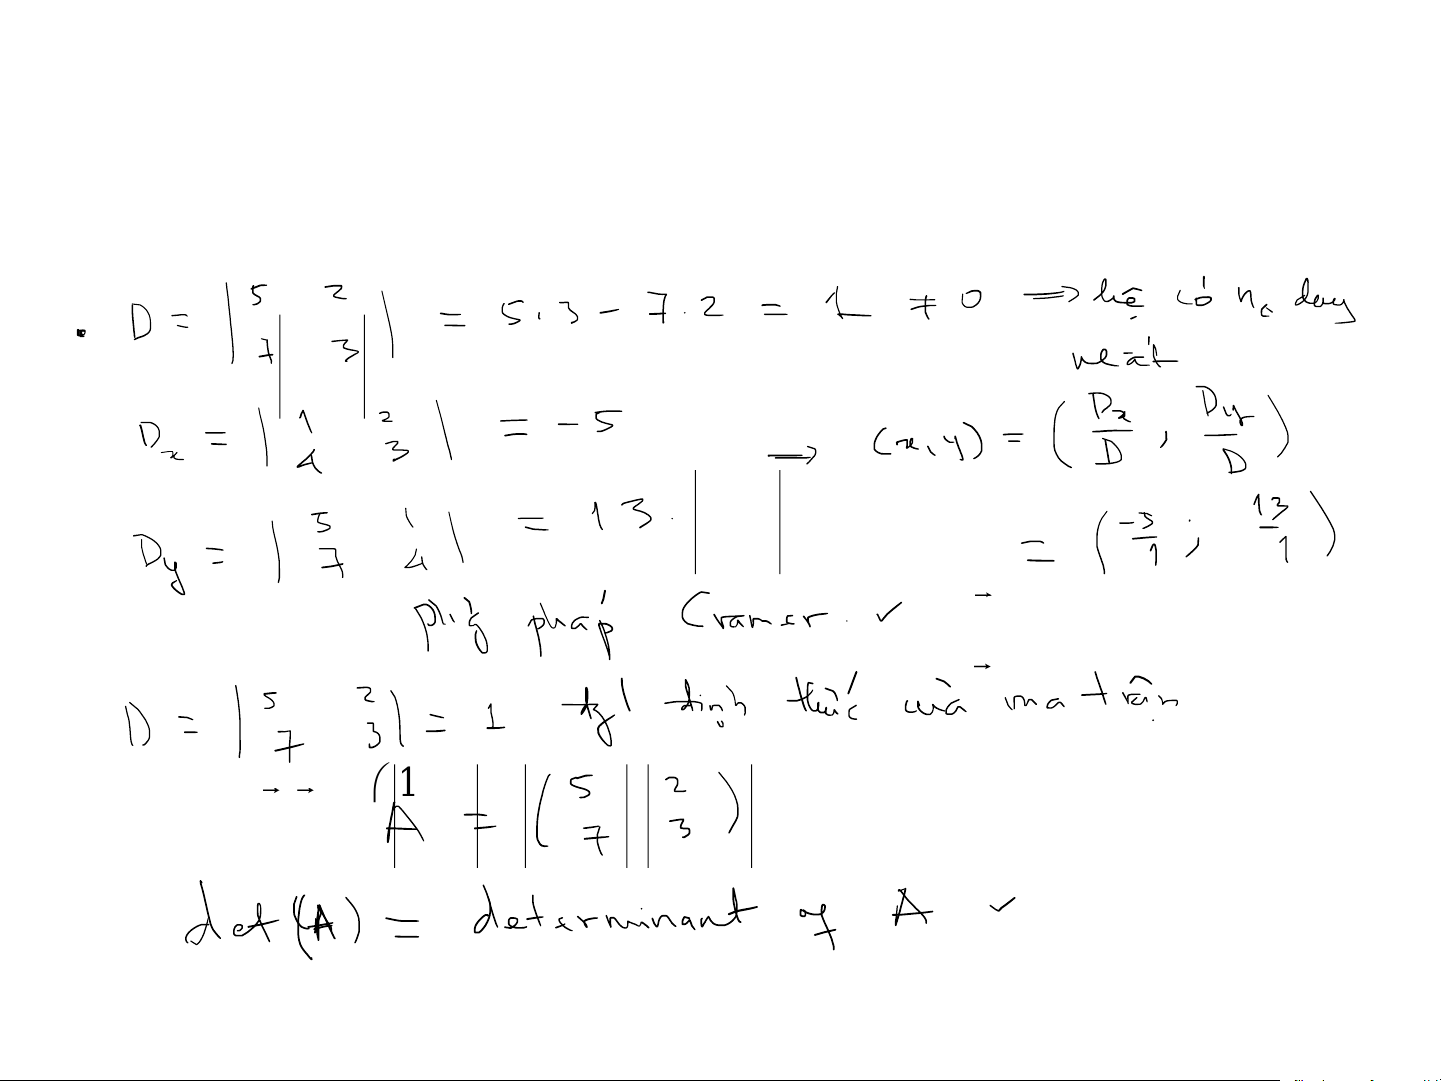 . D = | 5 2 | = 5.3 - 7.2 = 1 ≠ 0 => hệ có n₀ duy
7 3
nhất
Dx = | 1 2 | = -5
4 3
=> (x, y) = ( Dx/D , Dy/D )
Dy = | 5 1 | = 13.
7 4
= ( -5/1 ; 13/1 )
pháp Cramer. ✓ →
D = | 5 2 | = 1 định thức của ma trận →
7 3
→ → 1
A = ( 5 2 )
7 3
det(A) = determinant of A ✓